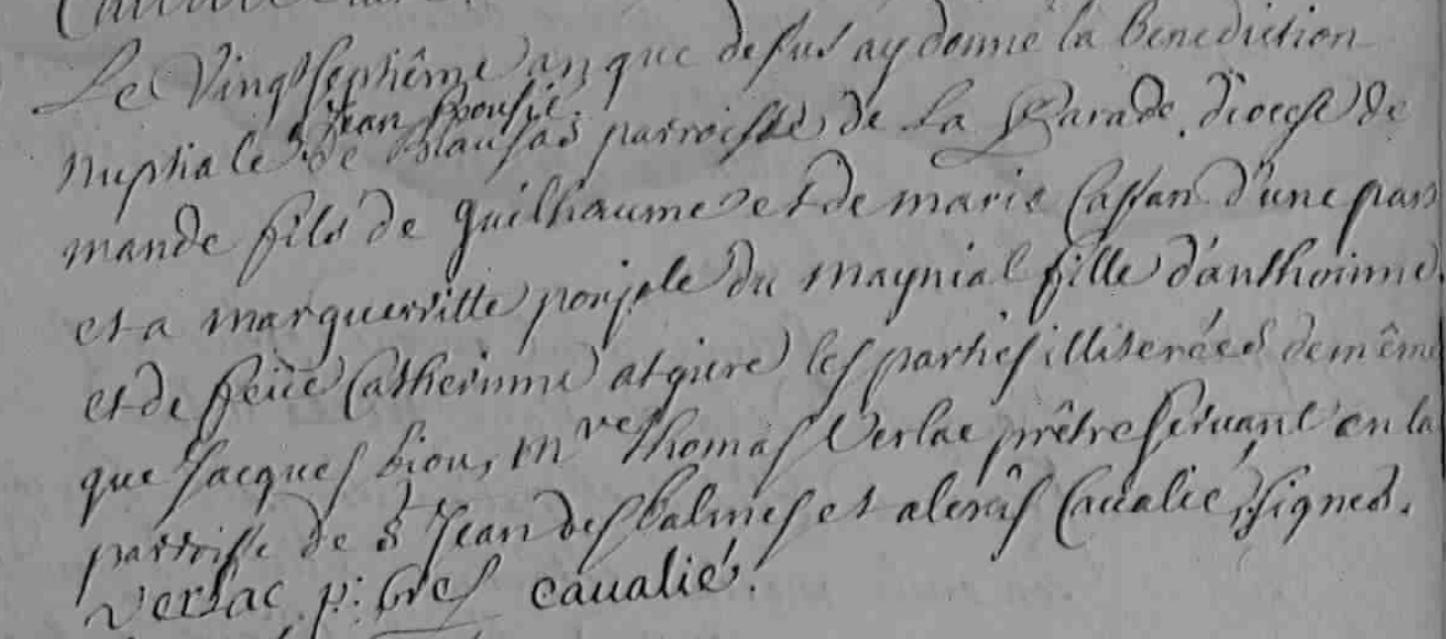 Le Vingtseptiême an que dessus ay donné la benediction
Jean
nuptiale de Blausas parroisse de La Parade, diocese de
mande fils de guilhaume et de marie Cassan d'une part
et a marguerritte poujole du maynial fille d'anthoinne
et de feüe Catherinne atgiere les parties illiterées de même
que jacques biou, mre thomas Verlac prêtre servant en la
parroisse de St jean des balmes et alexis Caualié, signes.
Verlac p: bres caualié.